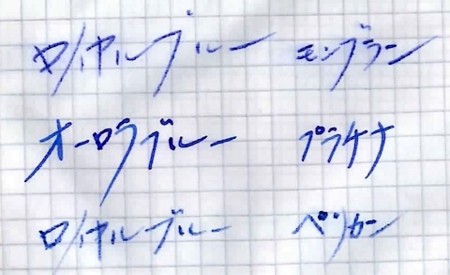 ロイヤルブルー モンブラン
オーロラブルー プラチナ
ロイヤルブルー ペリカン